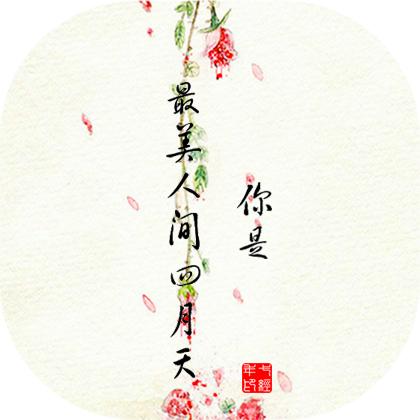 你是
最美人间四月天